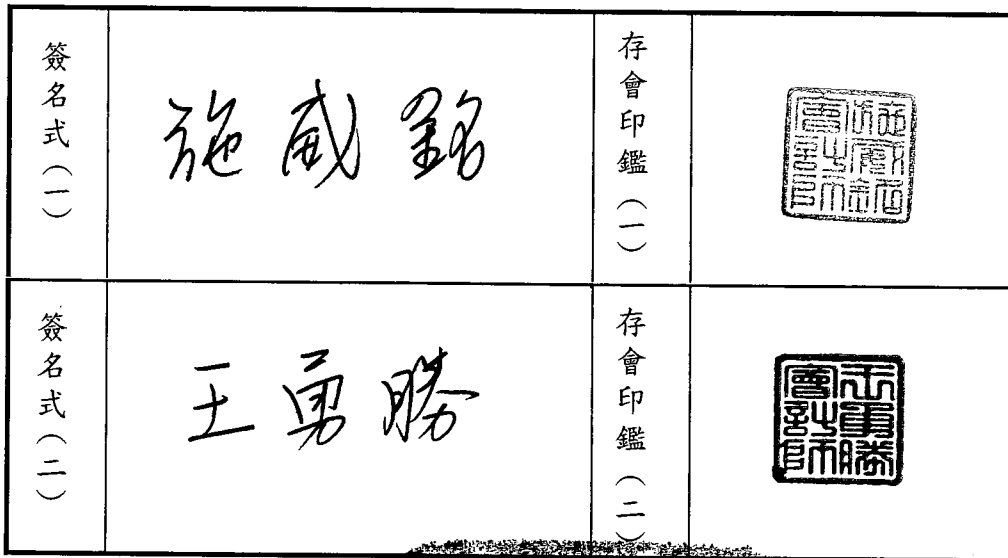 簽名式（一）
施威銘
存會印鑑（一）
施威銘會計師
簽名式（二）
王勇勝
存會印鑑（二）
王勇勝會計師